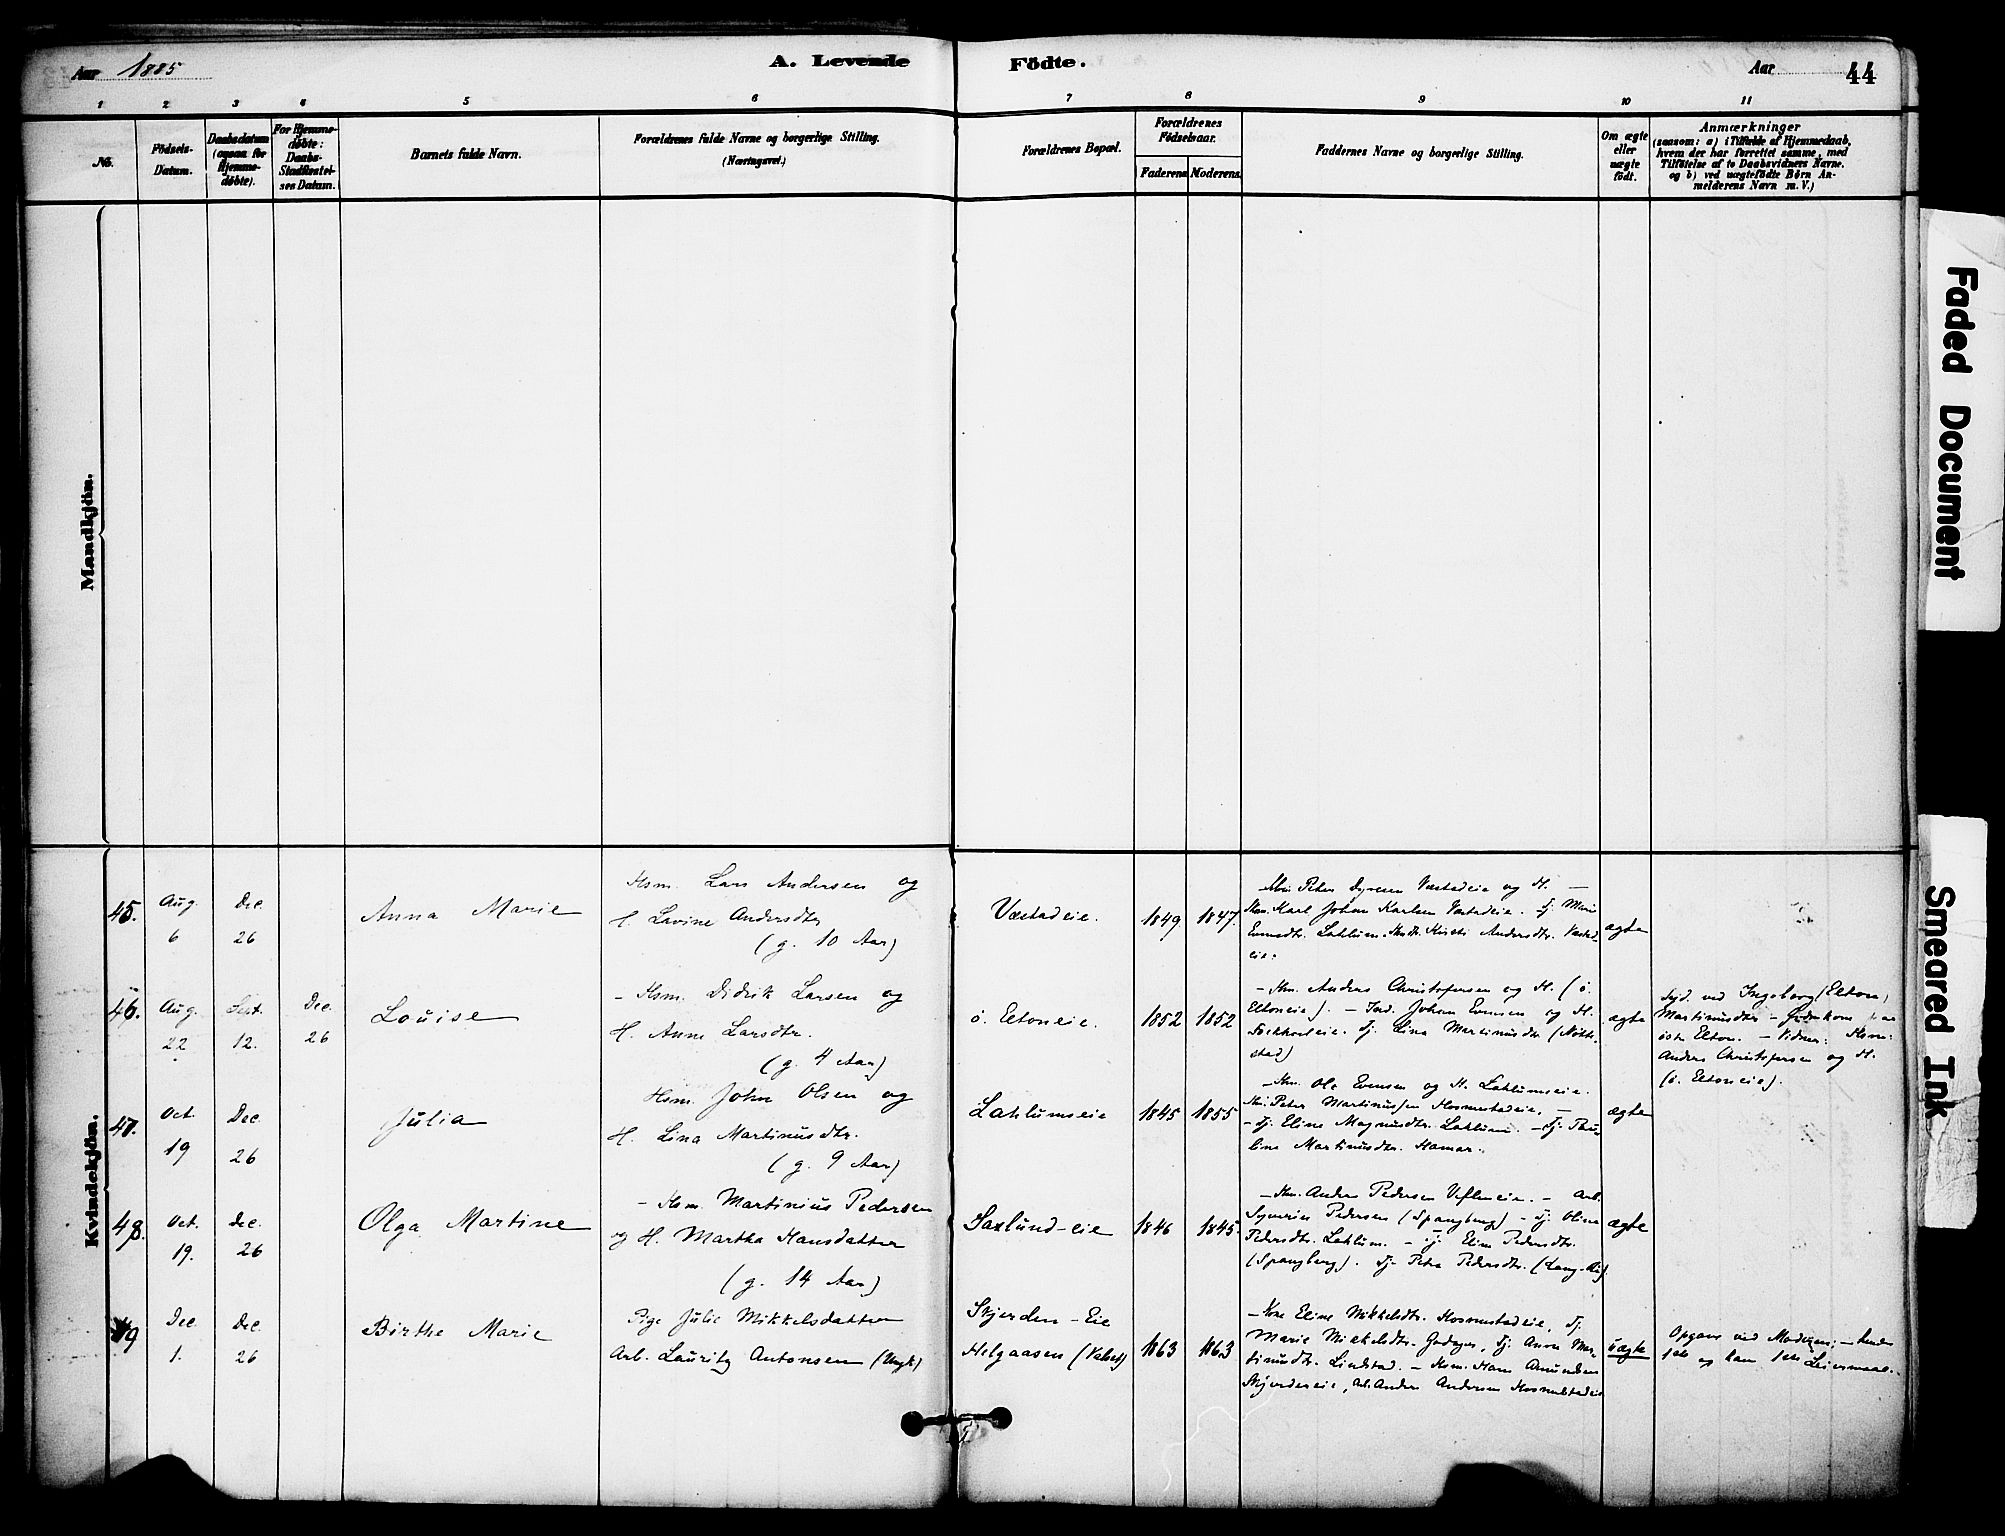 Aar 1885
A. Levende Födte.
Aar
44
1 2 3 4 5 6 7 8 9 10 11
No.
Födsels-
Datum.
Daabsdatum
(ogsaa for
Hjemme-
döbte).
For Hjemme-
döbte:
Daabs-
Stadfæstel-
ses Datum.
Barnets fulde Navn.
Forældrenes fulde Navne og borgerlige Stilling.
(Næringsvei.)
Forældrenes Bopæl.
Forældrenes
Födselsaar.
Faderens Moderens
Faddernes Navne og borgerlige Stilling.
Om ægte
eller
uægte
födt.
Anmærkninger
(saasom: a) i Tilfælde af Hjemmedaab,
hvem der har forrettet samme, med
Tilföielse af to Daabsvidners Navne.
og b) ved uægtefödte Börn An-
melderens Navn m. V.)
Mandkjön.
Kvindekjön.
45.
Aug.
6
Dec.
26
Anna Marie
Hsm. Lars Andersen og
H. Lavine Andersdtr
(g. 10 Aar)
Væstadeie.
1849
1847.
Peter Væstadeie og H. —
Karl Johan Karlsen Væstadeie. Tj. Mari
Evensdtr. Lahlum. Kirsti Andersdtr. Væstad-
eie.
ægte
46.
Aug.
22
Sept.
12.
Dec.
26
Louise
- Hsm. Didrik Larsen og
H. Anne Larsdtr.
(g. 4 Aar)
ö. Eltoneie.
1852
1852
- Anders Christofersen og H. (ö.
Eltoneie). — Ind. Johan Evensen og H.
Tj. Lina Martinusdtr (Nött-
stad)
ægte
ved Ingeborg (Elton)
Martinusdtr
östre Elton. — Vidner: Hsm.
Anders Christofersen og H.
(ö. Eltoneie).
47.
Oct.
19
Dec.
26
Julia
Hsm. John Olsen og
H. Lina Martinusdtr.
(g. 9 Aar)
Lahlumseie
1845
1855
Ole Evensen og H. Lahlumseie.
Peter Martinussen Hosmestadeie. —
- Tj. Eline Magnusdtr. Lahlum. - Tj. Pau-
line Martinusdtr. Hamar.
ægte
48.
Oct.
19.
Dec.
26
Olga Martine
- Hsm. Martinius Pedersen
og H. Martha Hansdatter
(g. 14 Aar)
Saxlund-eie
1846
1845.
Anders Pedersen — Arb.
Syverin Pedersen (Spangberg) - Tj. Oline
Pedersdtr. Lahlum. - Tj. Elise Pedersdtr.
(Spangberg). Tj. Petra Pedersdtr.
ægte
49
Dec.
1.
Dec.
26
Birthe Marie
Pige Julie Mikkelsdatter
Arb. Lauritz Antonsen (Ungk)
Skjerden - Eie
Helgaasen (Valset)
1863
1863
- Kone Eline Mikkelsdtr. Hosmestadeie, Tj.
Marie Mikkelsdtr. Tj. Anne Mar-
tinusdtr. Lindstad. - Hsm. Hans Amundsen
Skjerdeneie, Arb. Anders Andersen Hosmestadeie
uægte
Opgave ved Moderen; — hendes
1ste og hans 1ste Leiermaal.
Faded Document
Smeared Ink